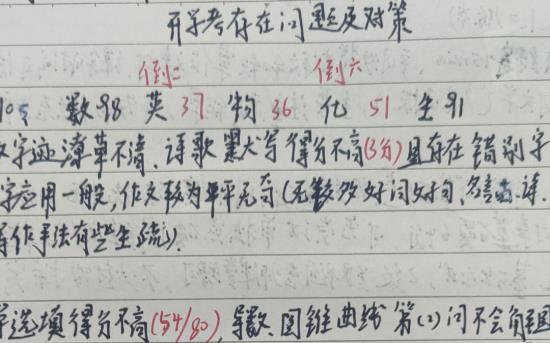 开学考存在问题及对策
倒二 倒六
105 数98 英37 物36 化51 生91
文字迹潦草不清、诗歌默写等得分不高(3分)且存在错别字
字应用一般,作文较为平平无奇(无较多好词好句、名言、诗.
写作手法有些生疏).
选项得分不高(54/80),导数、圆锥曲线第(2)问不会